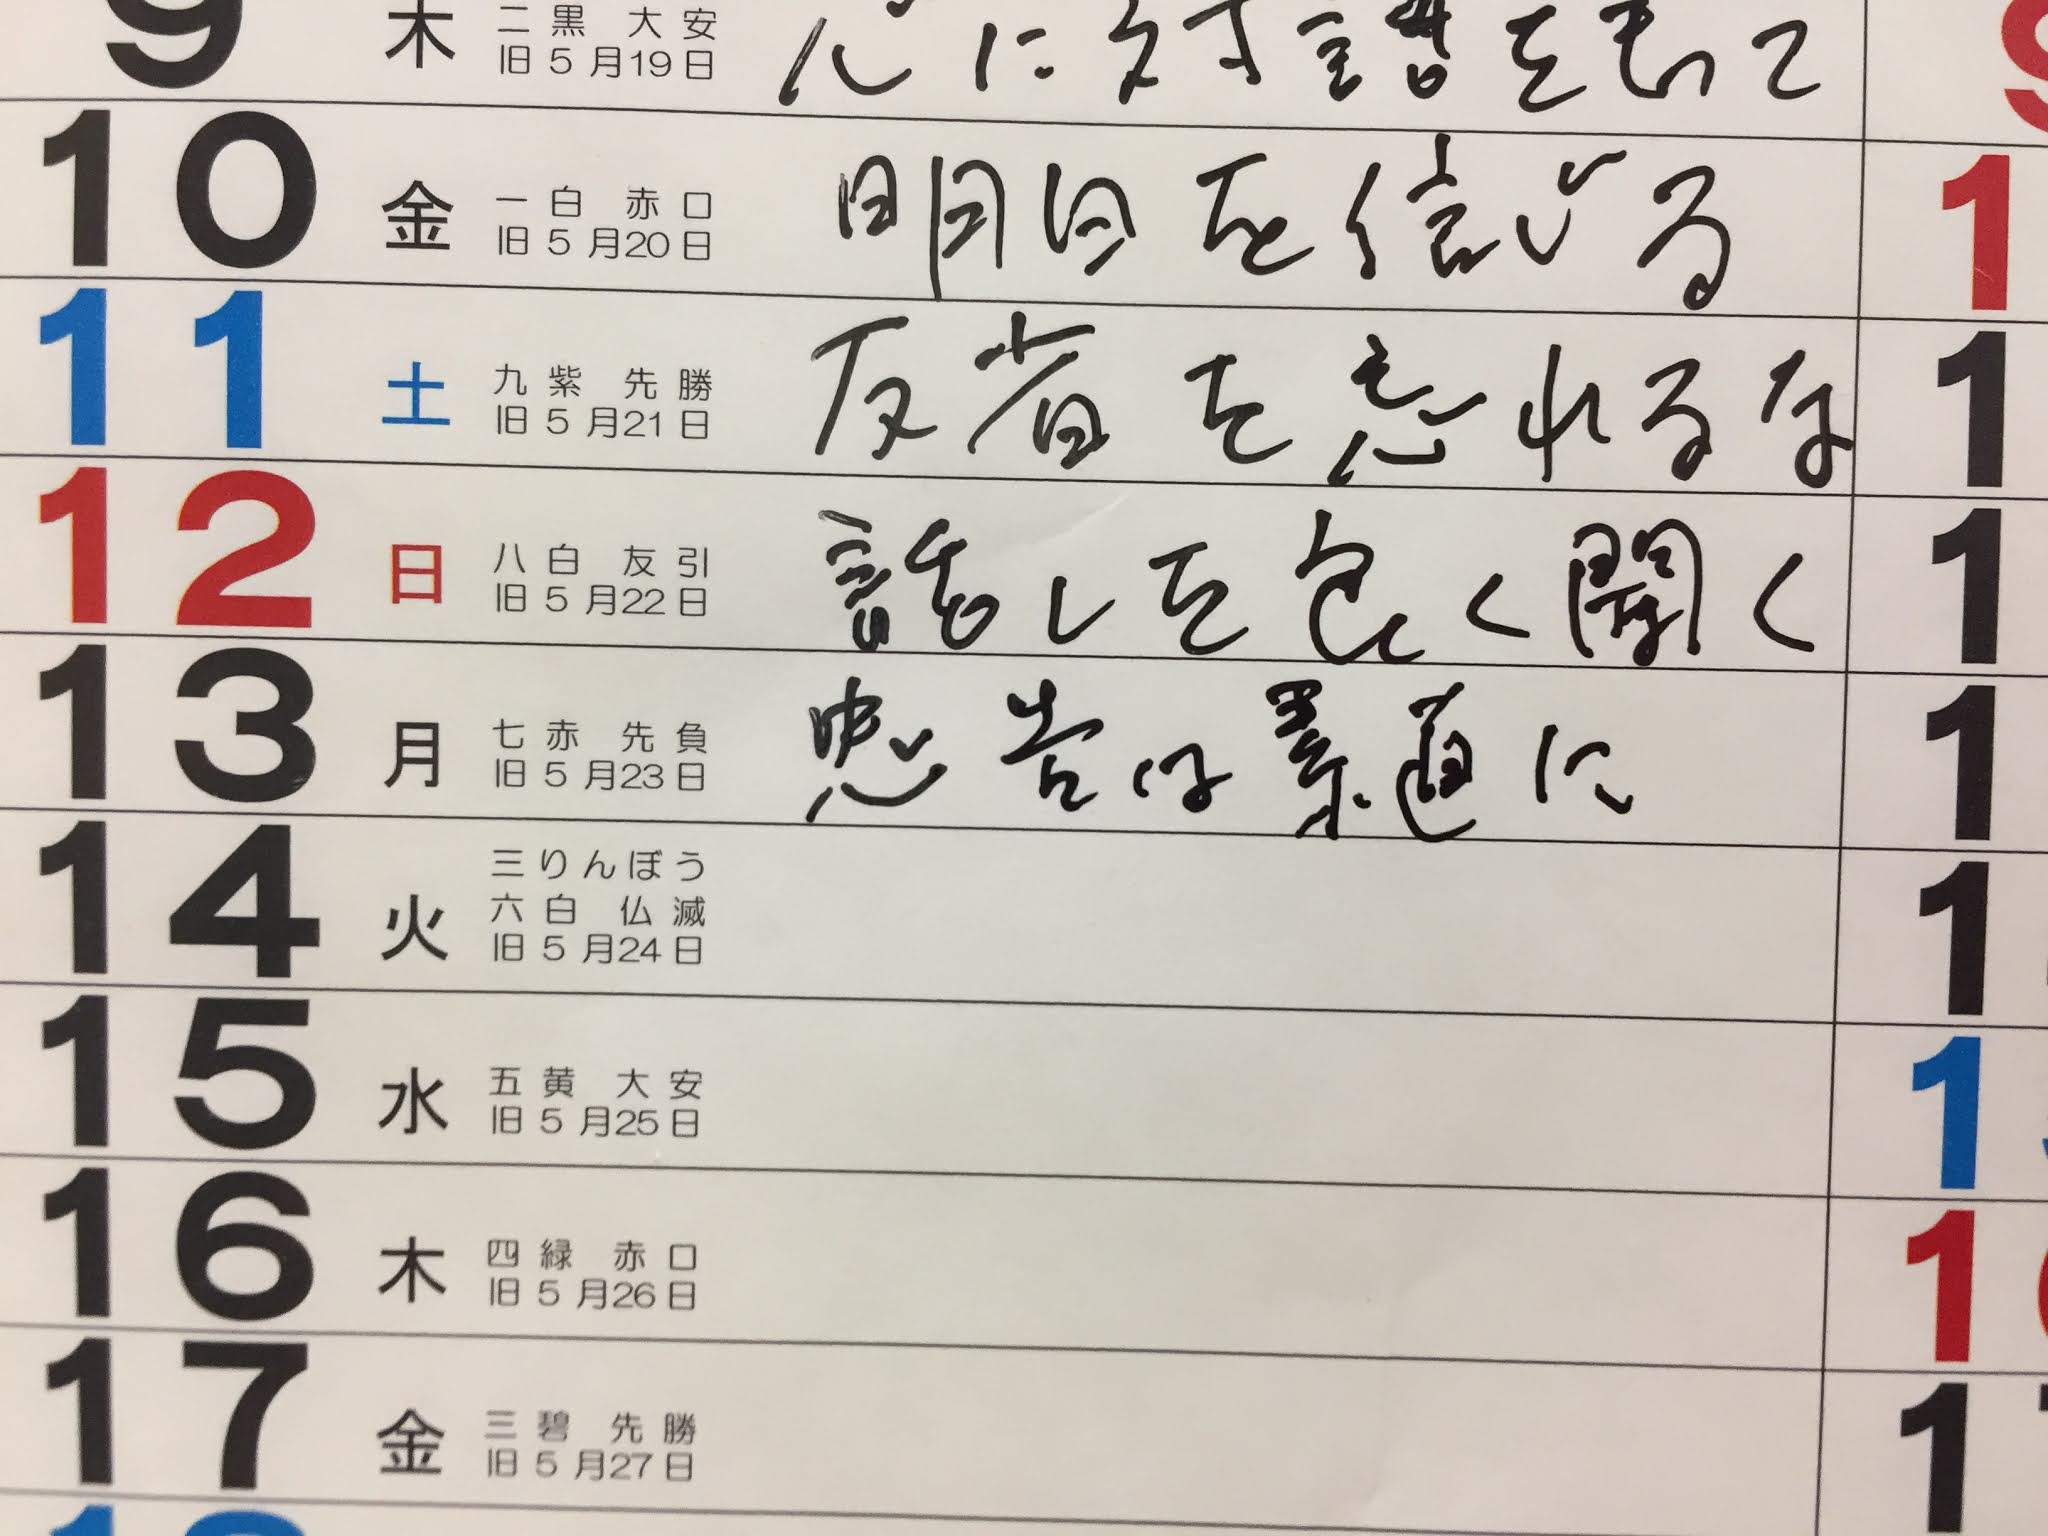 9 木 二黒 大安 心に対話を持って
旧5月19日
10 金 一白 赤口 明日を信じる
旧5月20日
11 土 九紫 先勝 反省を忘れるな
旧5月21日
12 日 八白 友引 話しを良く聞く
旧5月22日
13 月 七赤 先負 忠告は素直に
旧5月23日
三りんぼう
14 火 六白 仏滅
旧5月24日
15 水 五黄 大安
旧5月25日
16 木 四緑 赤口
旧5月26日
17 金 三碧 先勝
旧5月27日